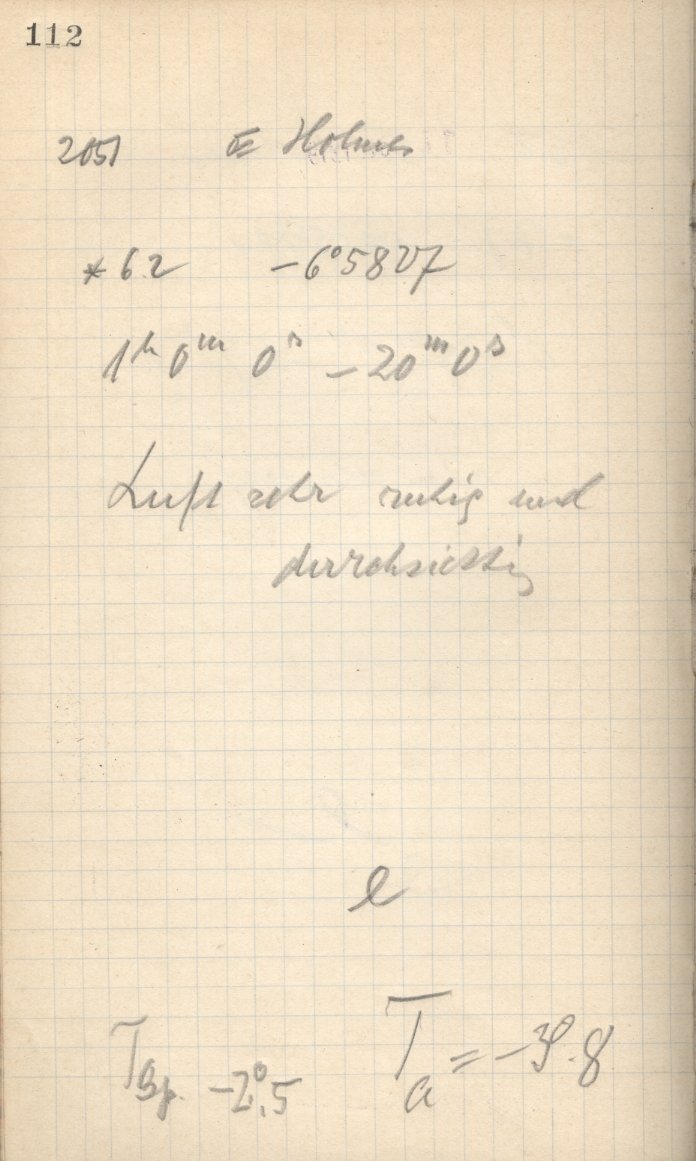 112
2051 E Holmes
* 6.2 -6°5827
1h 0m 0s - 20m 0s
Luft sehr ruhig und
durchsichtig
l
TSp. -2°.5 Ta = -3°.8